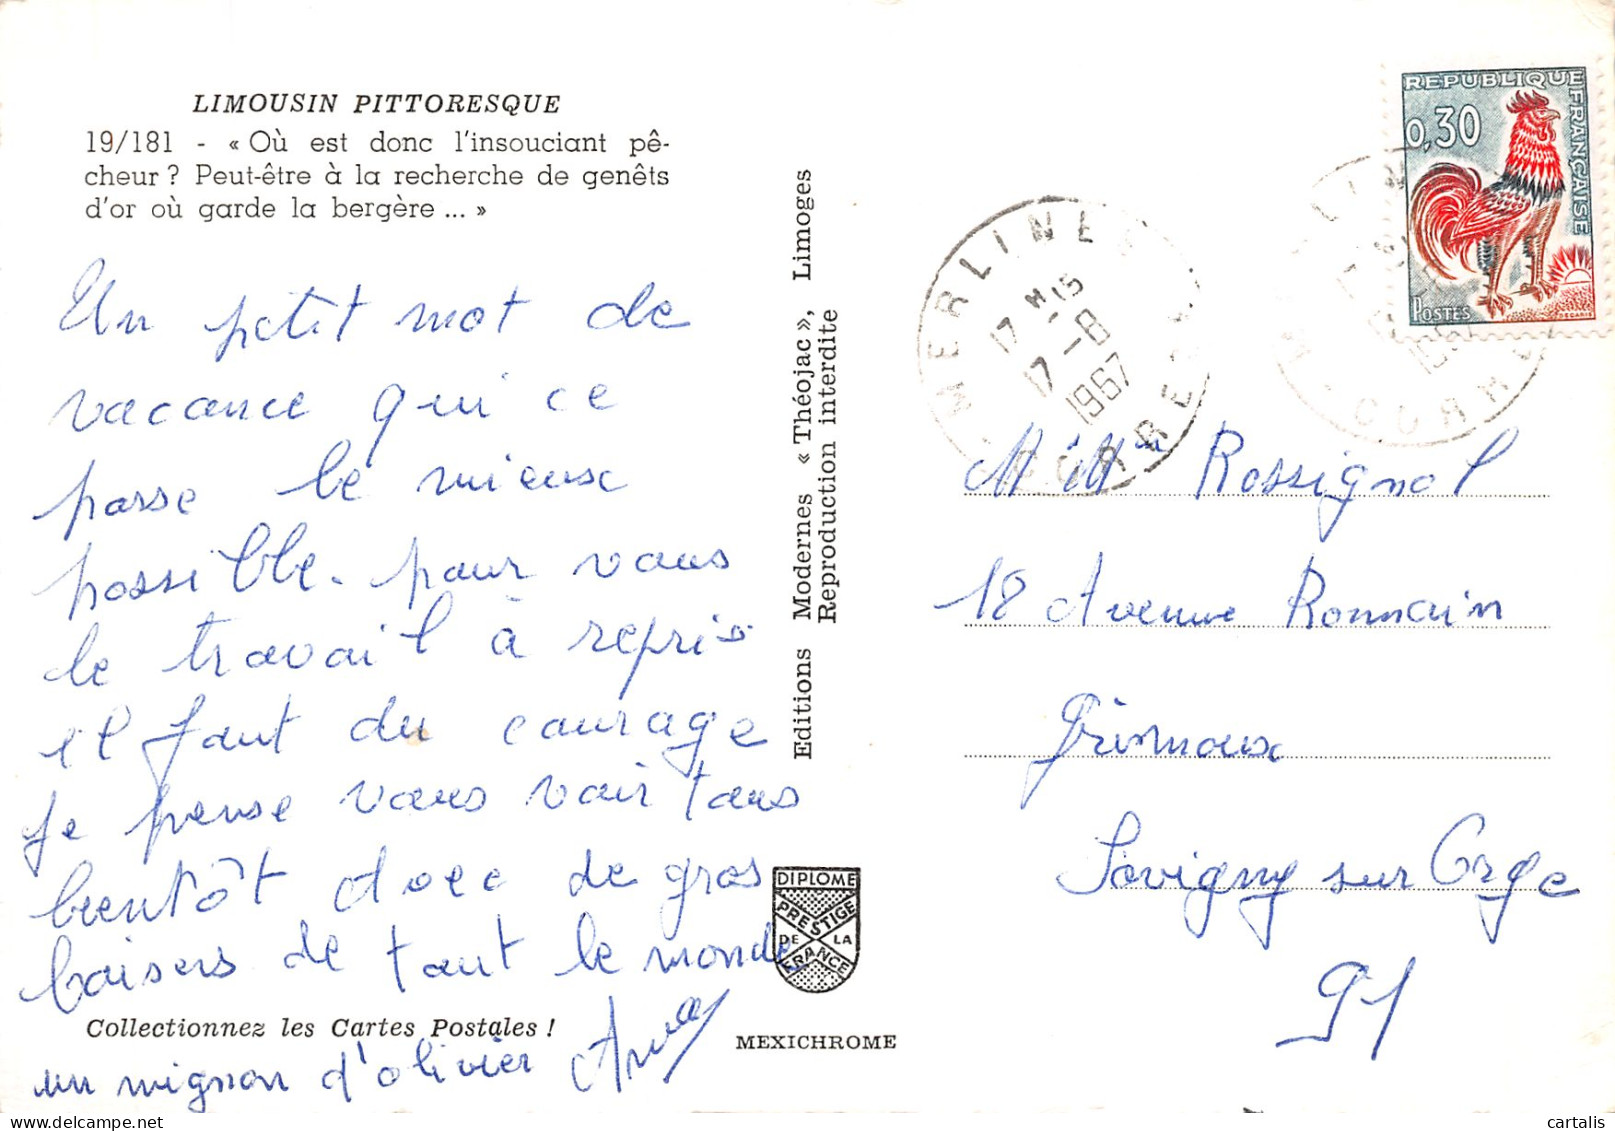 LIMOUSIN PITTORESQUE
19/181 - « Où est donc l'insouciant pê-
cheur ? Peut-être à la recherche de genêts
d'or où garde la bergère ... »
Un petit mot de
vacance qui ce
passe le mieux
possible. pour vous
le travail à repris
il faut du courage
je pense vous voir tous
bientôt donc de gros
baisers de tout le monde
Collectionnez les Cartes Postales !
un mignon d'olivier
Editions Modernes « Théojac », Limoges
Reproduction interdite
DIPLOME
PRESTIGE
DE LA
FRANCE
MEXICHROME
MERLINES
CORREZE
17 H 15
17 -8
1967
REPUBLIQUE FRANÇAISE
0,30
POSTES
DECARIS
M Mme Rossignol
18 Avenue Romain
Savigny sur Orge
91
cartalis
www.delcampe.net